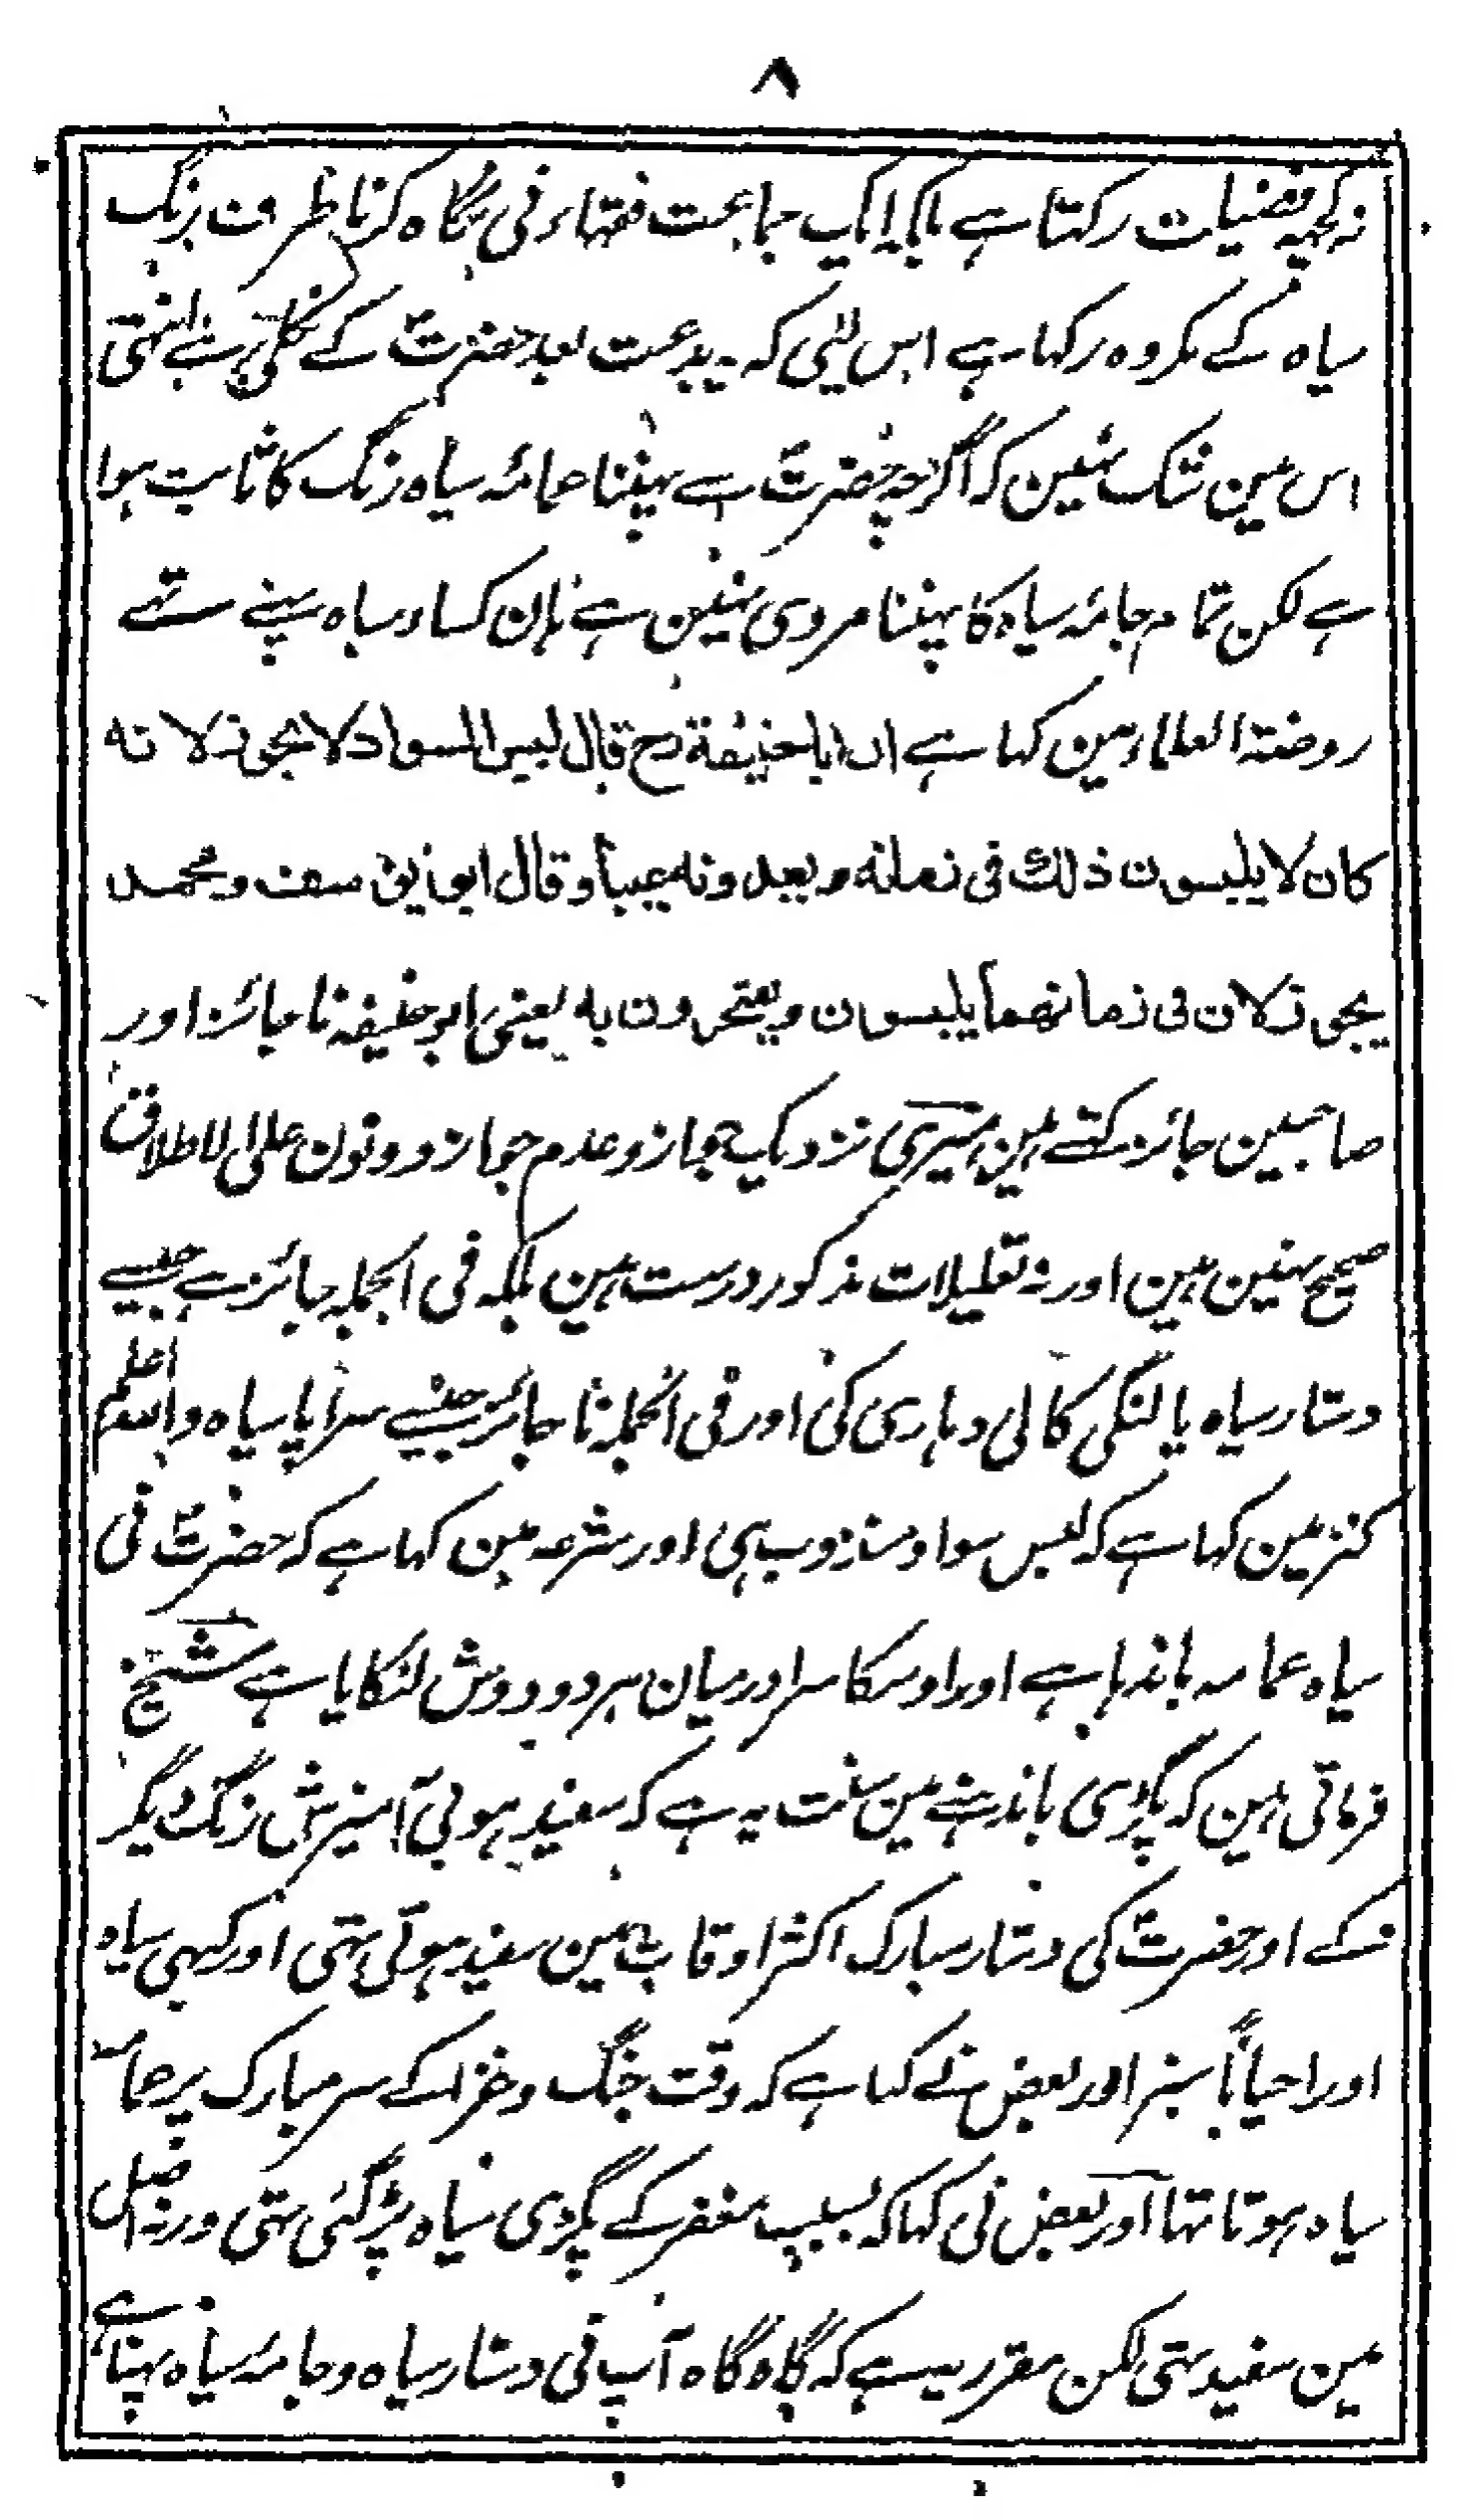 ۸
نہ کچہہ فضیلت رکہتا ہے بلکہ ایک جماعت فقہاء نی نگاہ کرنا طرف رنگ
سیاہ کے مکروہ رکہا ہے اس لئی کہ یہ بدعت بعد حضرتؐ کے نکلی ہے انتہی
اس مین شک نہین کہ اگرچہ حضرتؐ سے پہننا عمامۂ سیاہ رنگ کا ثابت ہوا
ہے لکن تمام جامۂ سیاہ کا پہننا مروی نہین ہے ہان کساء سیاہ پہنے تہے
روضۃ العلماء مین کہا ہے ان اباحنیفۃ رح قال لبس السواد لا یجوز لانہ
کان لا یلبسون ذلك فی زمانہ و یعدونہ عیباً و قال ابو یوسف و محمد
یجوز لان فی زمانھما یلبسون ویفتخرون بہ یعنی ابو حنیفہ ناجائز اور
صاحبین جائز کہتے ہین میری نزدیک جواز و عدم جواز دونون علی الاطلاق
صحیح نہین ہین اور نہ تعلیلات مذکور درست ہین بلکہ فی الجملہ جائز ہے جیسے
دستار سیاہ یا لنگی کالی دہاری کی اور فی الجملہ ناجائز جیسے سراپا سیاہ واللہ اعلم
کنز مین کہا ہے کہ لبس سواد مندوب ہی اور شرعہ مین کہا ہے کہ حضرتؐ نی
سیاہ عمامہ باندہا ہے اور اوسکا سرا درمیان ہر دو دوش لٹکایا ہے شیخ
فرماتی ہین کہ پگڑی باندہنے مین سنت یہ ہے کہ سفید ہو بی آمیزش رنگ دیگر
کے اور حضرتؐ کی دستار مبارک اکثر اوقات مین سفید ہوتی تہی اور کبہی سیاہ
اور احیاناً سبز اور بعض نے کہا ہے کہ وقت جنگ و غزا کے سر مبارک پر عمامہ
سیاہ ہوتا تہا اور بعض نی کہا کہ بسبب مغفر کے پگڑی سیاہ پڑ گئی تہی ورنہ اصل
مین سفید تہی لکن مقرر یہ ہے کہ گاہ گاہ آپ نی دستار سیاہ و جامۂ سیاہ پہنا ہے